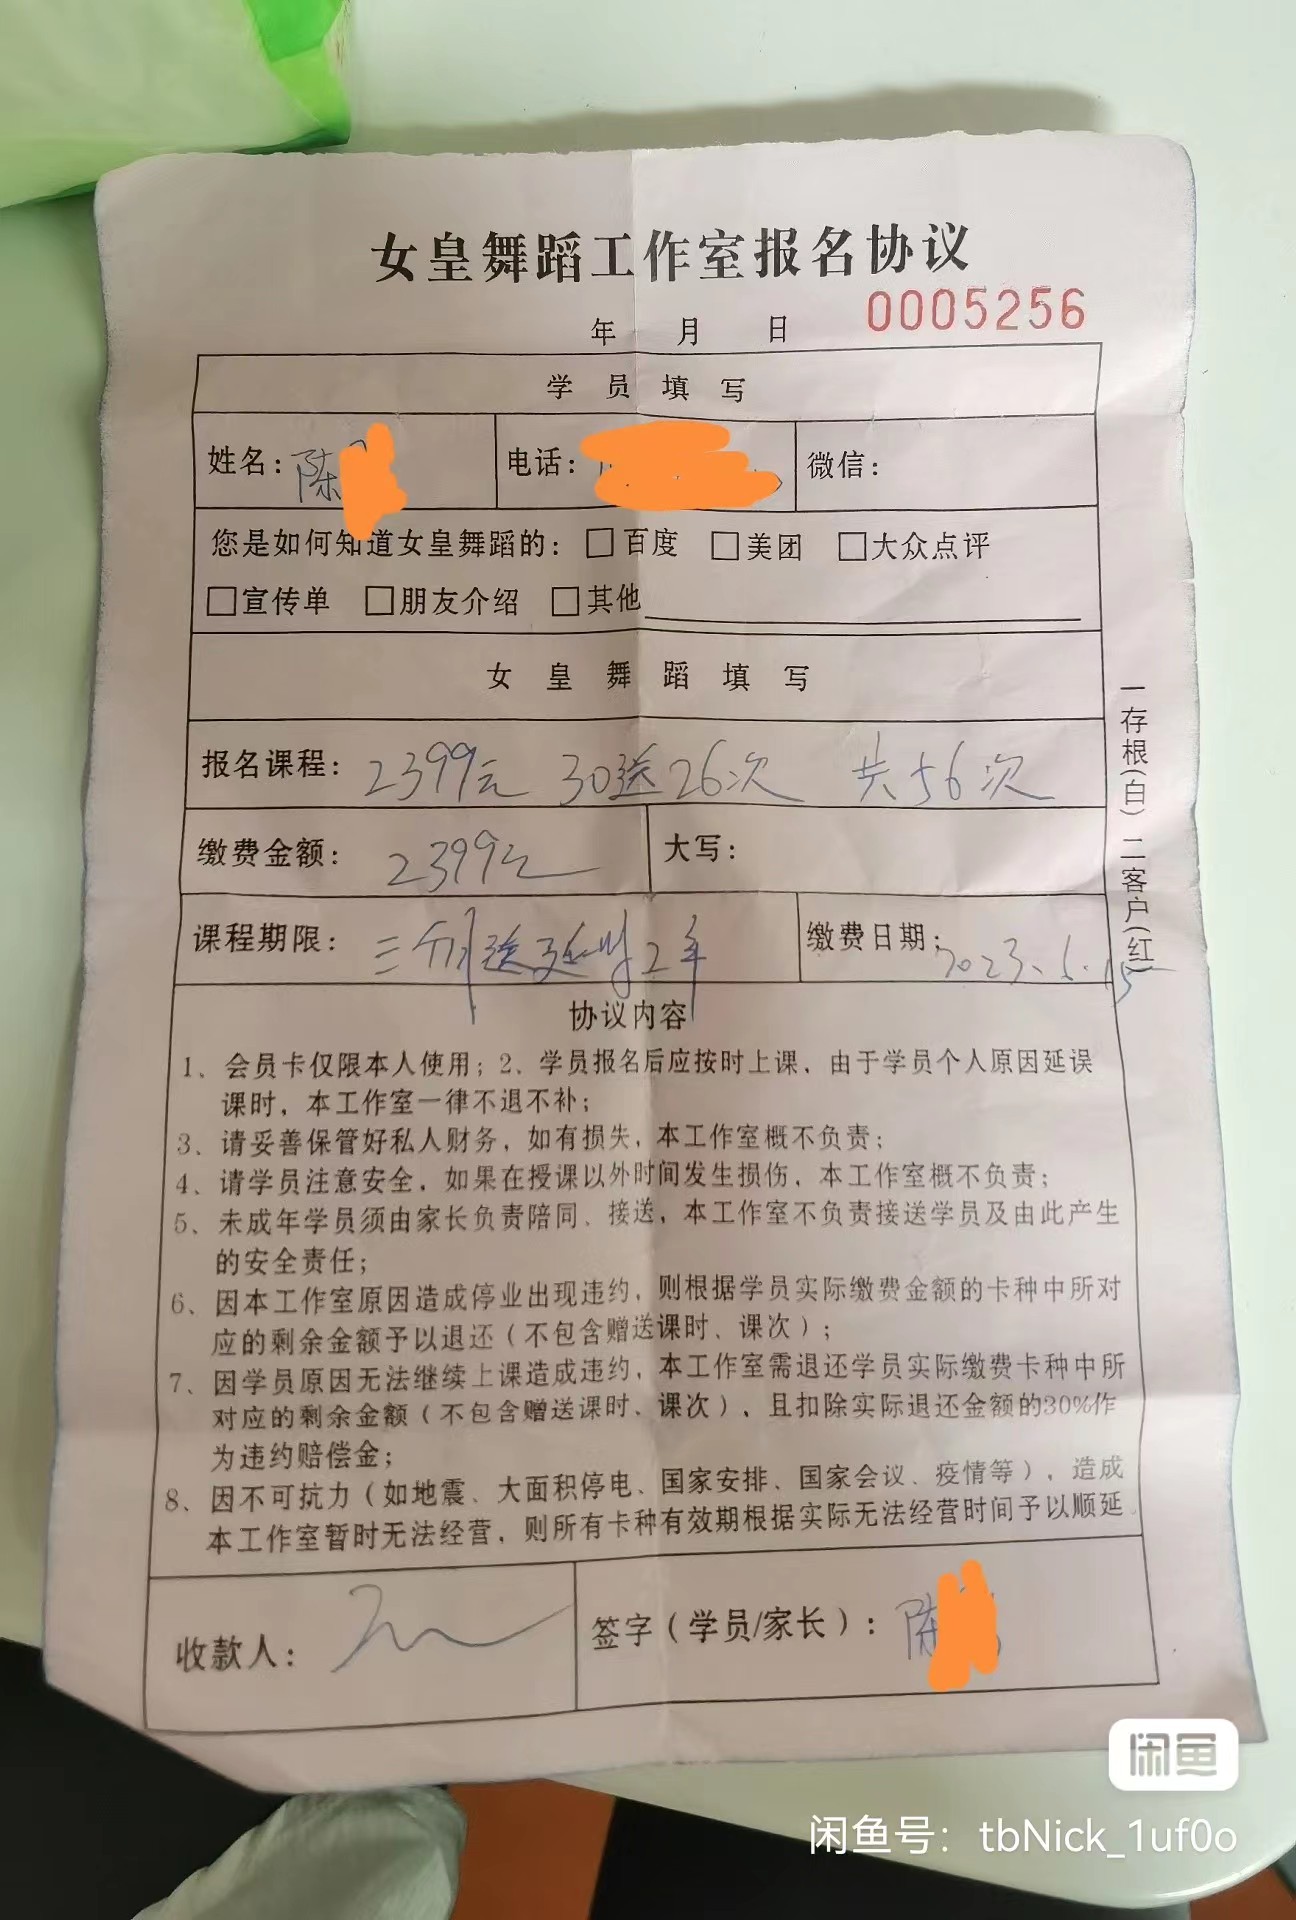 女皇舞蹈工作室报名协议
0005256
年 月 日
学员填写
姓名：陈
电话：
微信：
您是如何知道女皇舞蹈的：□百度 □美团 □大众点评
□宣传单 □朋友介绍 □其他
女皇舞蹈填写
报名课程：2399元 30送26次 共56次
缴费金额：2399元
大写：
课程期限：三个月送延时2年
缴费日期：2023.6.15
一存根(白) 二客户(红)
协议内容
1、会员卡仅限本人使用；2、学员报名后应按时上课，由于学员个人原因延误
课时，本工作室一律不退不补；
3、请妥善保管好私人财务，如有损失，本工作室概不负责；
4、请学员注意安全，如果在授课以外时间发生损伤，本工作室概不负责；
5、未成年学员须由家长负责陪同、接送，本工作室不负责接送学员及由此产生
的安全责任；
6、因本工作室原因造成停业出现违约，则根据学员实际缴费金额的卡种中所对
应的剩余金额予以退还（不包含赠送课时、课次）；
7、因学员原因无法继续上课造成违约，本工作室需退还学员实际缴费卡种中所
对应的剩余金额（不包含赠送课时、课次），且扣除实际退还金额的30%作
为违约赔偿金；
8、因不可抗力（如地震、大面积停电、国家安排、国家会议、疫情等），造成
本工作室暂时无法经营，则所有卡种有效期根据实际无法经营时间予以顺延。
收款人：
签字（学员/家长）：陈
闲鱼
闲鱼号：tbNick_1uf0o